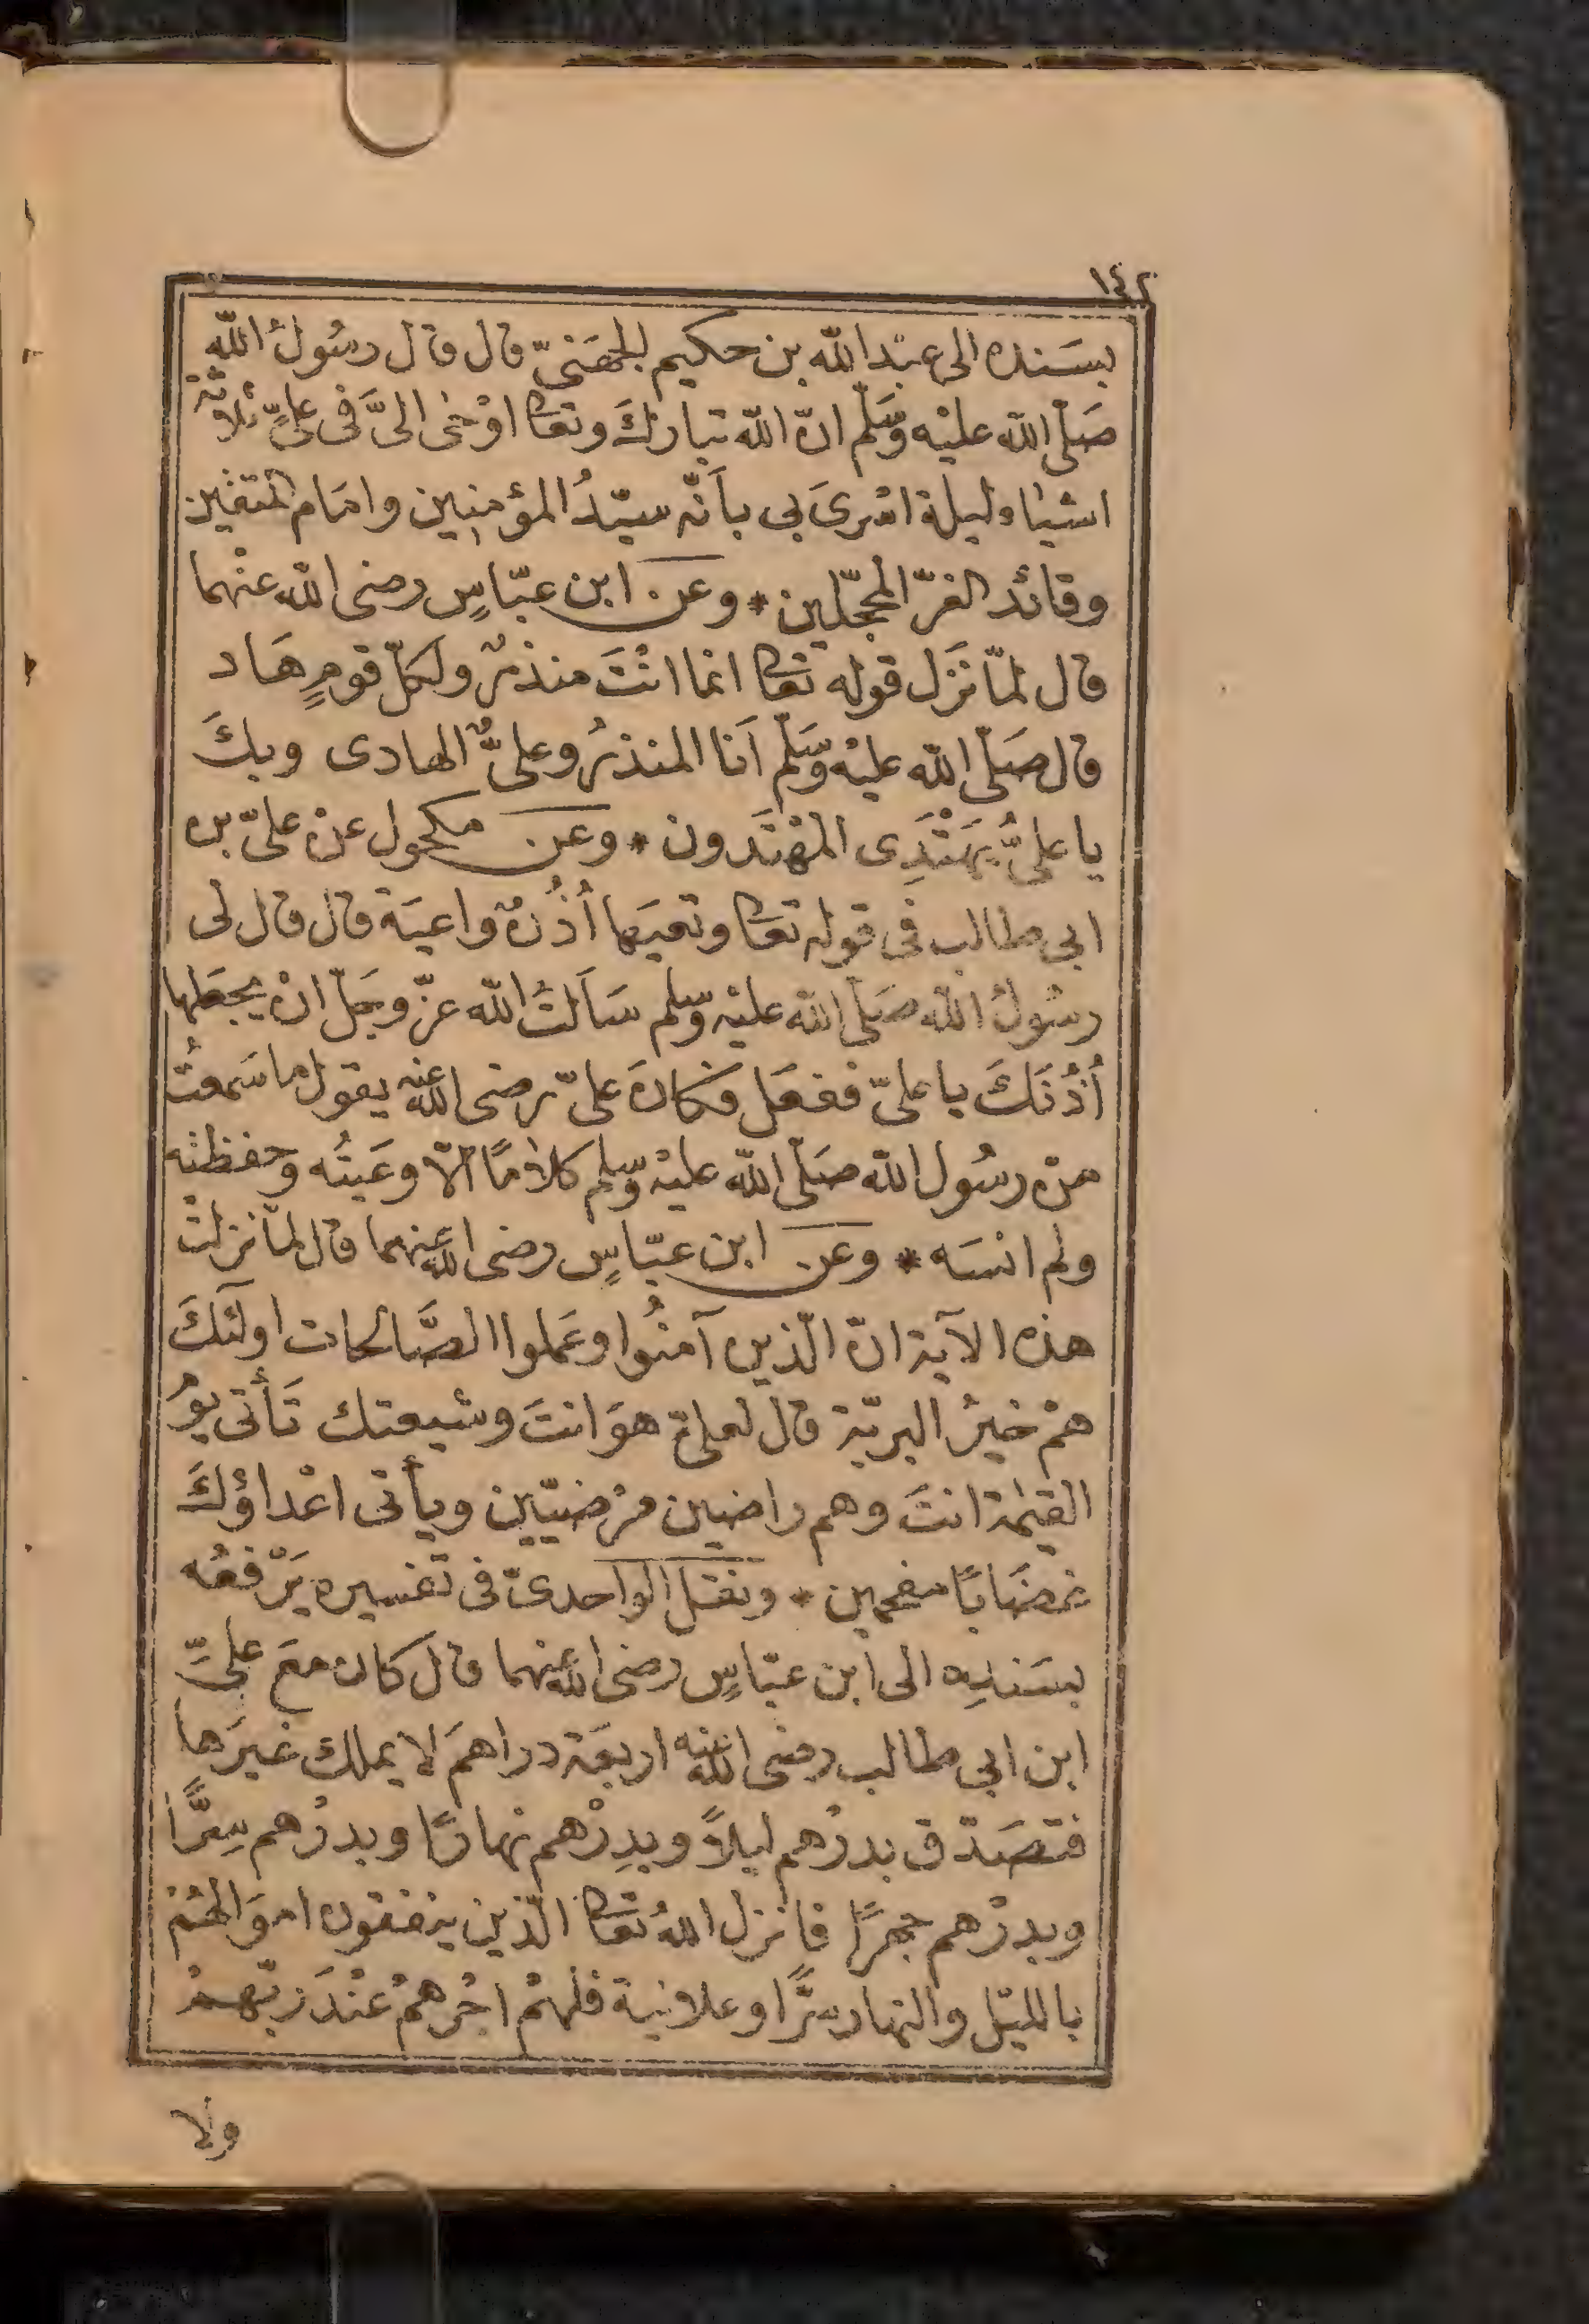 ١٤٢
بسَنده الى عبْد الله بن حكيم الجهَنىّ قال قال رسُولُ الله
صَلّى الله عليْه وسَلّم انّ الله تبارك وتعا اوْحٰى الىَّ فى علىٍّ ثلاثة
اشياء ليلة اسْرىَ بى بأنّه سيّدُ المؤمنين وامَام المتقين
وقائد الغرّ المحجّلين * وعن ابن عبّاسٍ رضى الله عنْهما
قال لمّا نَزَل قوله تعا انما انْتَ منذرٌ ولكلّ قومٍ هَاد
قال صَلّى الله عليْه وسَلّم اَنا المنذرُ وعلىٌّ الهادى وبكَ
يا علىُّ يَهْتَدِى المهْتَدون * وعن مكحول عنْ علىّ بن
ابى طالب فى قوله تعا وتعيَها أُذُنٌ واعيَة قال قال لى
رسُولُ الله صَلّى الله عليْه وسّلم سَاَلتُ الله عزّ وجَلّ انْ يجعَلها
أُذُنَكَ يا علىّ ففعَل فكانَ علىّ رضى الله عنه يقول ما سَمعتُ
منْ رسُول الله صَلّى الله عليْه وسّلم كلامًا الّا وعَيتُه وحفظته
ولم انسَه * وعن ابن عبّاسٍ رضى الله عنهما قال لمّا نزلتْ
هذه الآية انّ الّذين آمنُوا وعَملوا الصَّالحات اولئكَ
همْ خيرُ البريّة قال لعلىّ هوَ انتَ وشيعتك تَأتى يوْمُ
القيٰمة انتَ وهم راضين مرْضيّين ويأتى اعْداؤكَ
غضَابًا مقمحين * ونقَل الواحدىّ فى تفسيره يَرْفعُه
بسَندِه الى ابن عبّاسٍ رضى الله عنهما قالَ كان معَ علىٍّ
ابن ابى طالب رضى الله عنه اربعَة دراهمَ لا يملك غيرَها
فتصَدق بدرْهم ليلًا وبدِرْهم نهارًا وبدرْهم سِرًّا
وبدرْهم جهرًا فانزل اللهُ تعا الّذين ينفقون اموَالهُمْ
بالليْل والنهار سرًّا وعلانية فلهمْ اجْرهمْ عنْدَ ربّهمْ
ولا